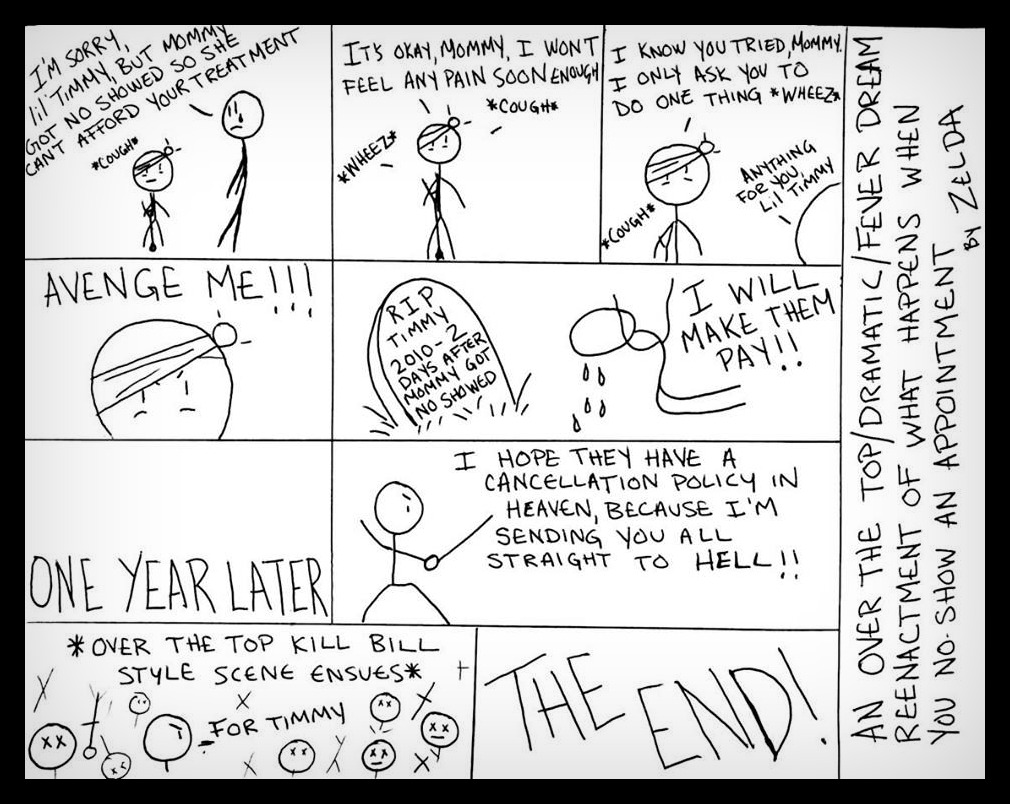 I'M SORRY,
lil' TIMMY, BUT MOMMY
GOT NO SHOWED SO SHE
CAN'T AFFORD YOUR TREATMENT
*COUGH*
IT'S OKAY, MOMMY, I WON'T
FEEL ANY PAIN SOON ENOUGH
*COUGH*
*WHEEZ*
I KNOW YOU TRIED, MOMMY.
I ONLY ASK YOU TO
DO ONE THING *WHEEZ*
ANYTHING
FOR YOU,
Lil TIMMY
*COUGH*
AVENGE ME!!!
RIP
TIMMY
2010-2
DAYS AFTER
MOMMY GOT
NO SHOWED
I WILL
MAKE THEM
PAY!!
ONE YEAR LATER
I HOPE THEY HAVE A
CANCELLATION POLICY IN
HEAVEN, BECAUSE I'M
SENDING YOU ALL
STRAIGHT TO HELL!!
*OVER THE TOP KILL BILL
STYLE SCENE ENSUES*
FOR TIMMY
THE
END!
AN OVER THE TOP/DRAMATIC/FEVER DREAM
REENACTMENT OF WHAT HAPPENS WHEN
YOU NO-SHOW AN APPOINTMENT
BY ZELDA